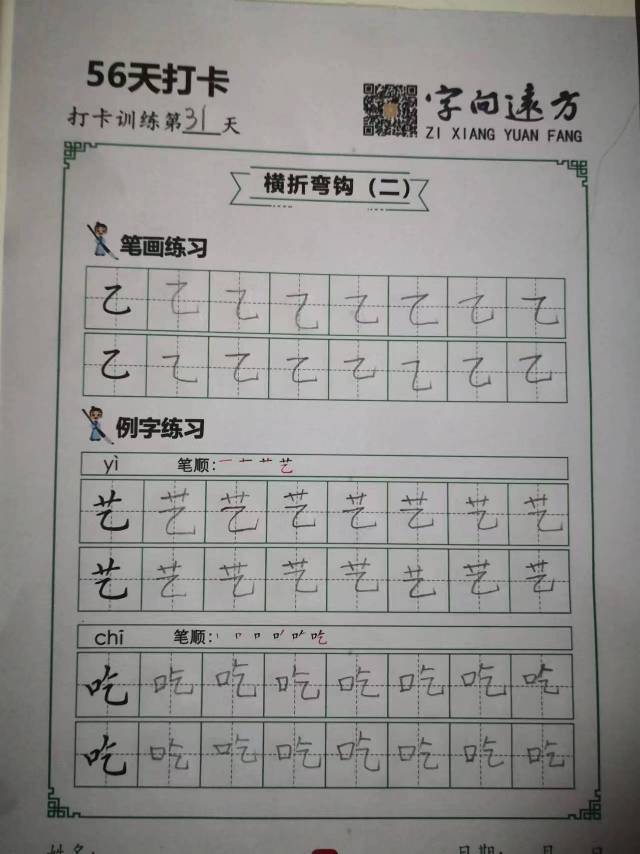 56天打卡
打卡训练第31天
字向远方
ZI XIANG YUAN FANG
横折弯钩（二）
笔画练习
乙 乙 乙 乙 乙 乙 乙 乙
乙 乙 乙 乙 乙 乙 乙 乙
例字练习
yì 笔顺：一 十 艹 艺
艺 艺 艺 艺 艺 艺 艺 艺
艺 艺 艺 艺 艺 艺 艺 艺
chī 笔顺：丨 𠃍 口 口丿 口𠂉 吃
吃 吃 吃 吃 吃 吃 吃 吃
吃 吃 吃 吃 吃 吃 吃 吃
姓名： 日期： 月 日